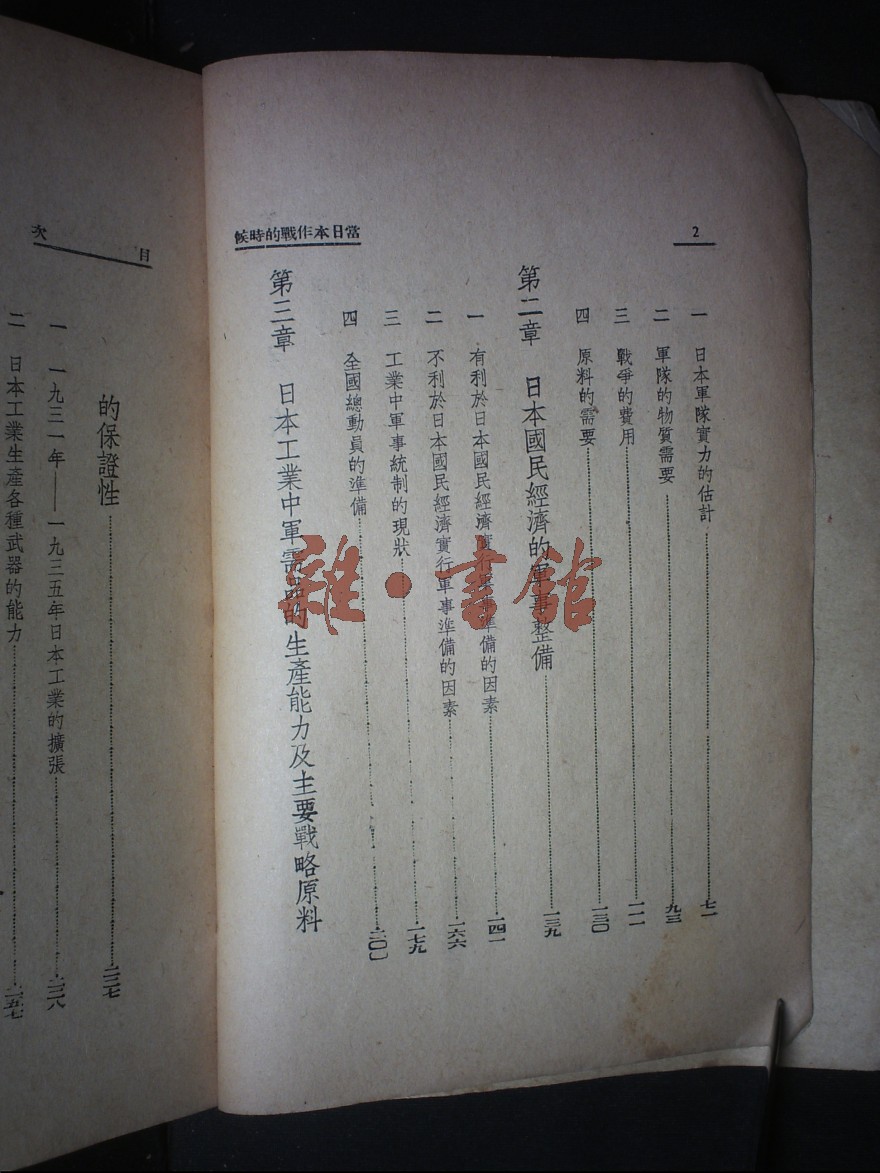 2
當日本作戰的時候
一 日本軍隊實力的估計……七一
二 軍隊的物質需要……九三
三 戰爭的費用……一一一
四 原料的需要……一三〇
第二章 日本國民經濟的軍事整備……一三九
一 有利於日本國民經濟實行軍事準備的因素……一四一
二 不利於日本國民經濟實行軍事準備的因素……一六六
三 工業中軍事統制的現狀……一七九
四 全國總動員的準備……二〇〇
第三章 日本工業中軍需品的生產能力及主要戰略原料
目次
的保證性……二二七
一 一九三一年——一九三五年日本工業的擴張……二二八
二 日本工業生產各種武器的能力……二五七
雜·書館